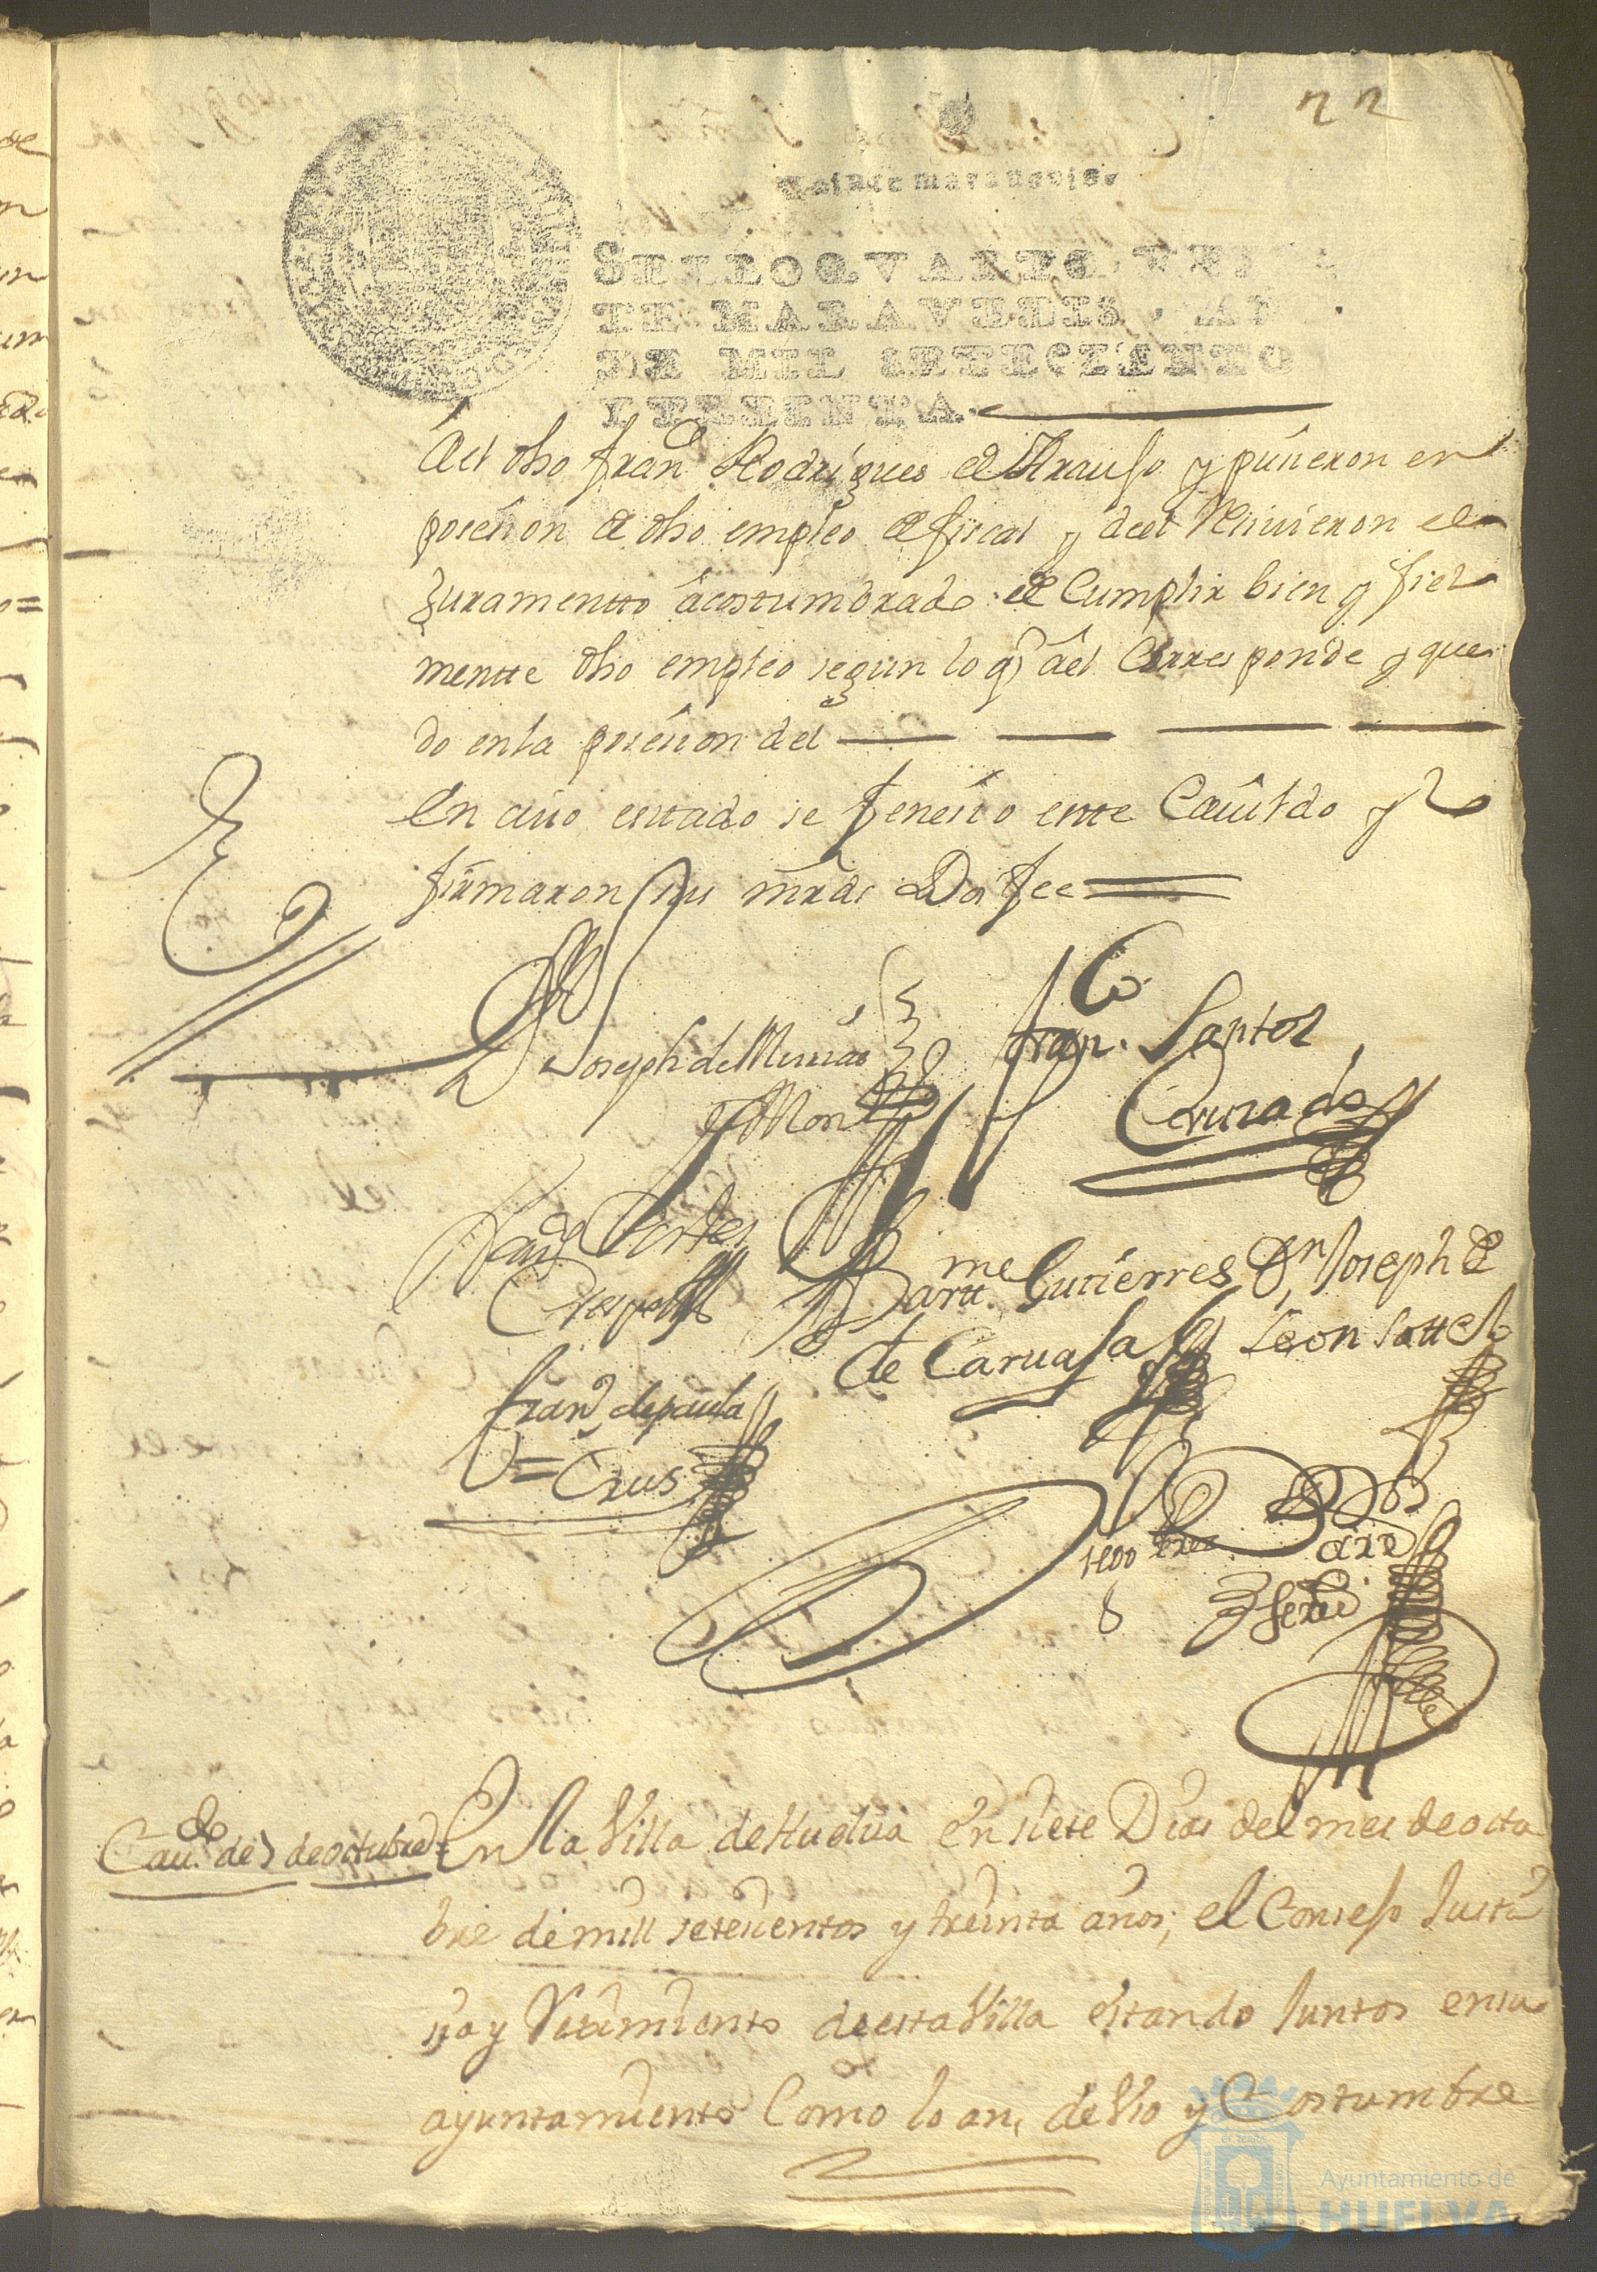 22
Veinte maravedis.
SELLO QVARTO, VEI
TE MARAVEDIS, AÑ
DE MIL SETECIENTO
Y TREINTA.
âel dho fran.co Rodrigues de Araujo y pusieron en
poseſion de dho empleo de fiscal y de el Resivieron el
Juramentto acostumbrado de Cumplir bien y fiel
mentte dho empleo segun lo q̃ âel Corresponde y que
do en la poseſion del
En cuio esttado se fenesio estte Cauildo y
firmaron sus mrds Doi fee
Joseph de
fran.co Santos
Coronado
Fran.co Cortes
Crespo
Bartt.me Gutierres
de Caruajal
Dn Joseph de
Leon Sottelo
fran.co de paula
Crus
Cau.do de 7 de octubre
En la Villa de Huelua en siete Dias del mes de octu
bre de mill setesientos y treinta años, el Consejo Justi
sia y Reximiento de esta Villa estando Juntos en su
ayuntamiento Como lo an, de Vso y Costumbre
Ayuntamiento de
HUELVA